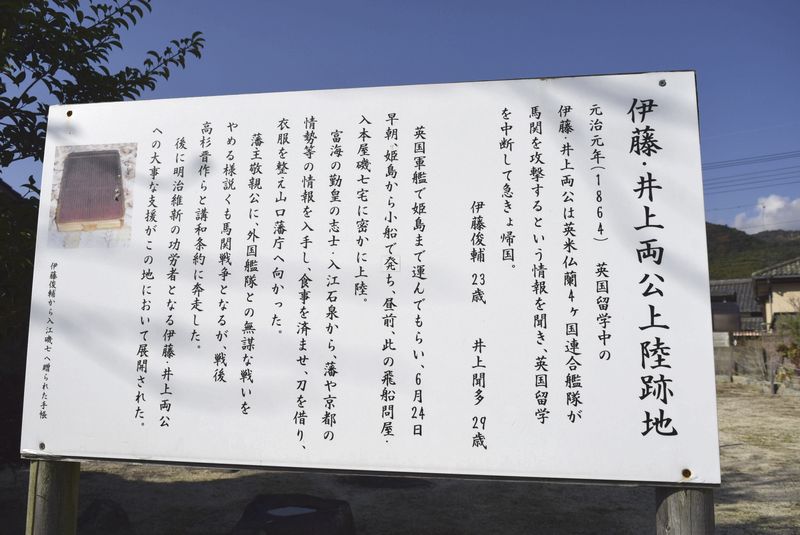 伊藤・井上両公上陸跡地
元治元年(1864) 英国留学中の
伊藤・井上両公は英米仏蘭4ヶ国連合艦隊が
馬関を攻撃するという情報を聞き、英国留学
を中断して急きょ帰国。
伊藤俊輔 23歳 井上聞多 29歳
英国軍艦で姫島まで運んでもらい、6月24日
早朝、姫島から小船で発ち、昼前、此の飛船問屋・
入本屋磯七宅に密かに上陸。
富海の勤皇の志士・入江石泉から、藩や京都の
情勢等の情報を入手し、食事を済ませ、刀を借り、
衣服を整え山口藩庁へ向かった。
藩主敬親公に、外国艦隊との無謀な戦いを
やめる様説くも馬関戦争となるが、戦後
高杉晋作らと講和条約に奔走した。
後に明治維新の功労者となる伊藤・井上両公
への大事な支援がこの地において展開された。
伊藤俊輔から入江磯七へ贈られた手帳